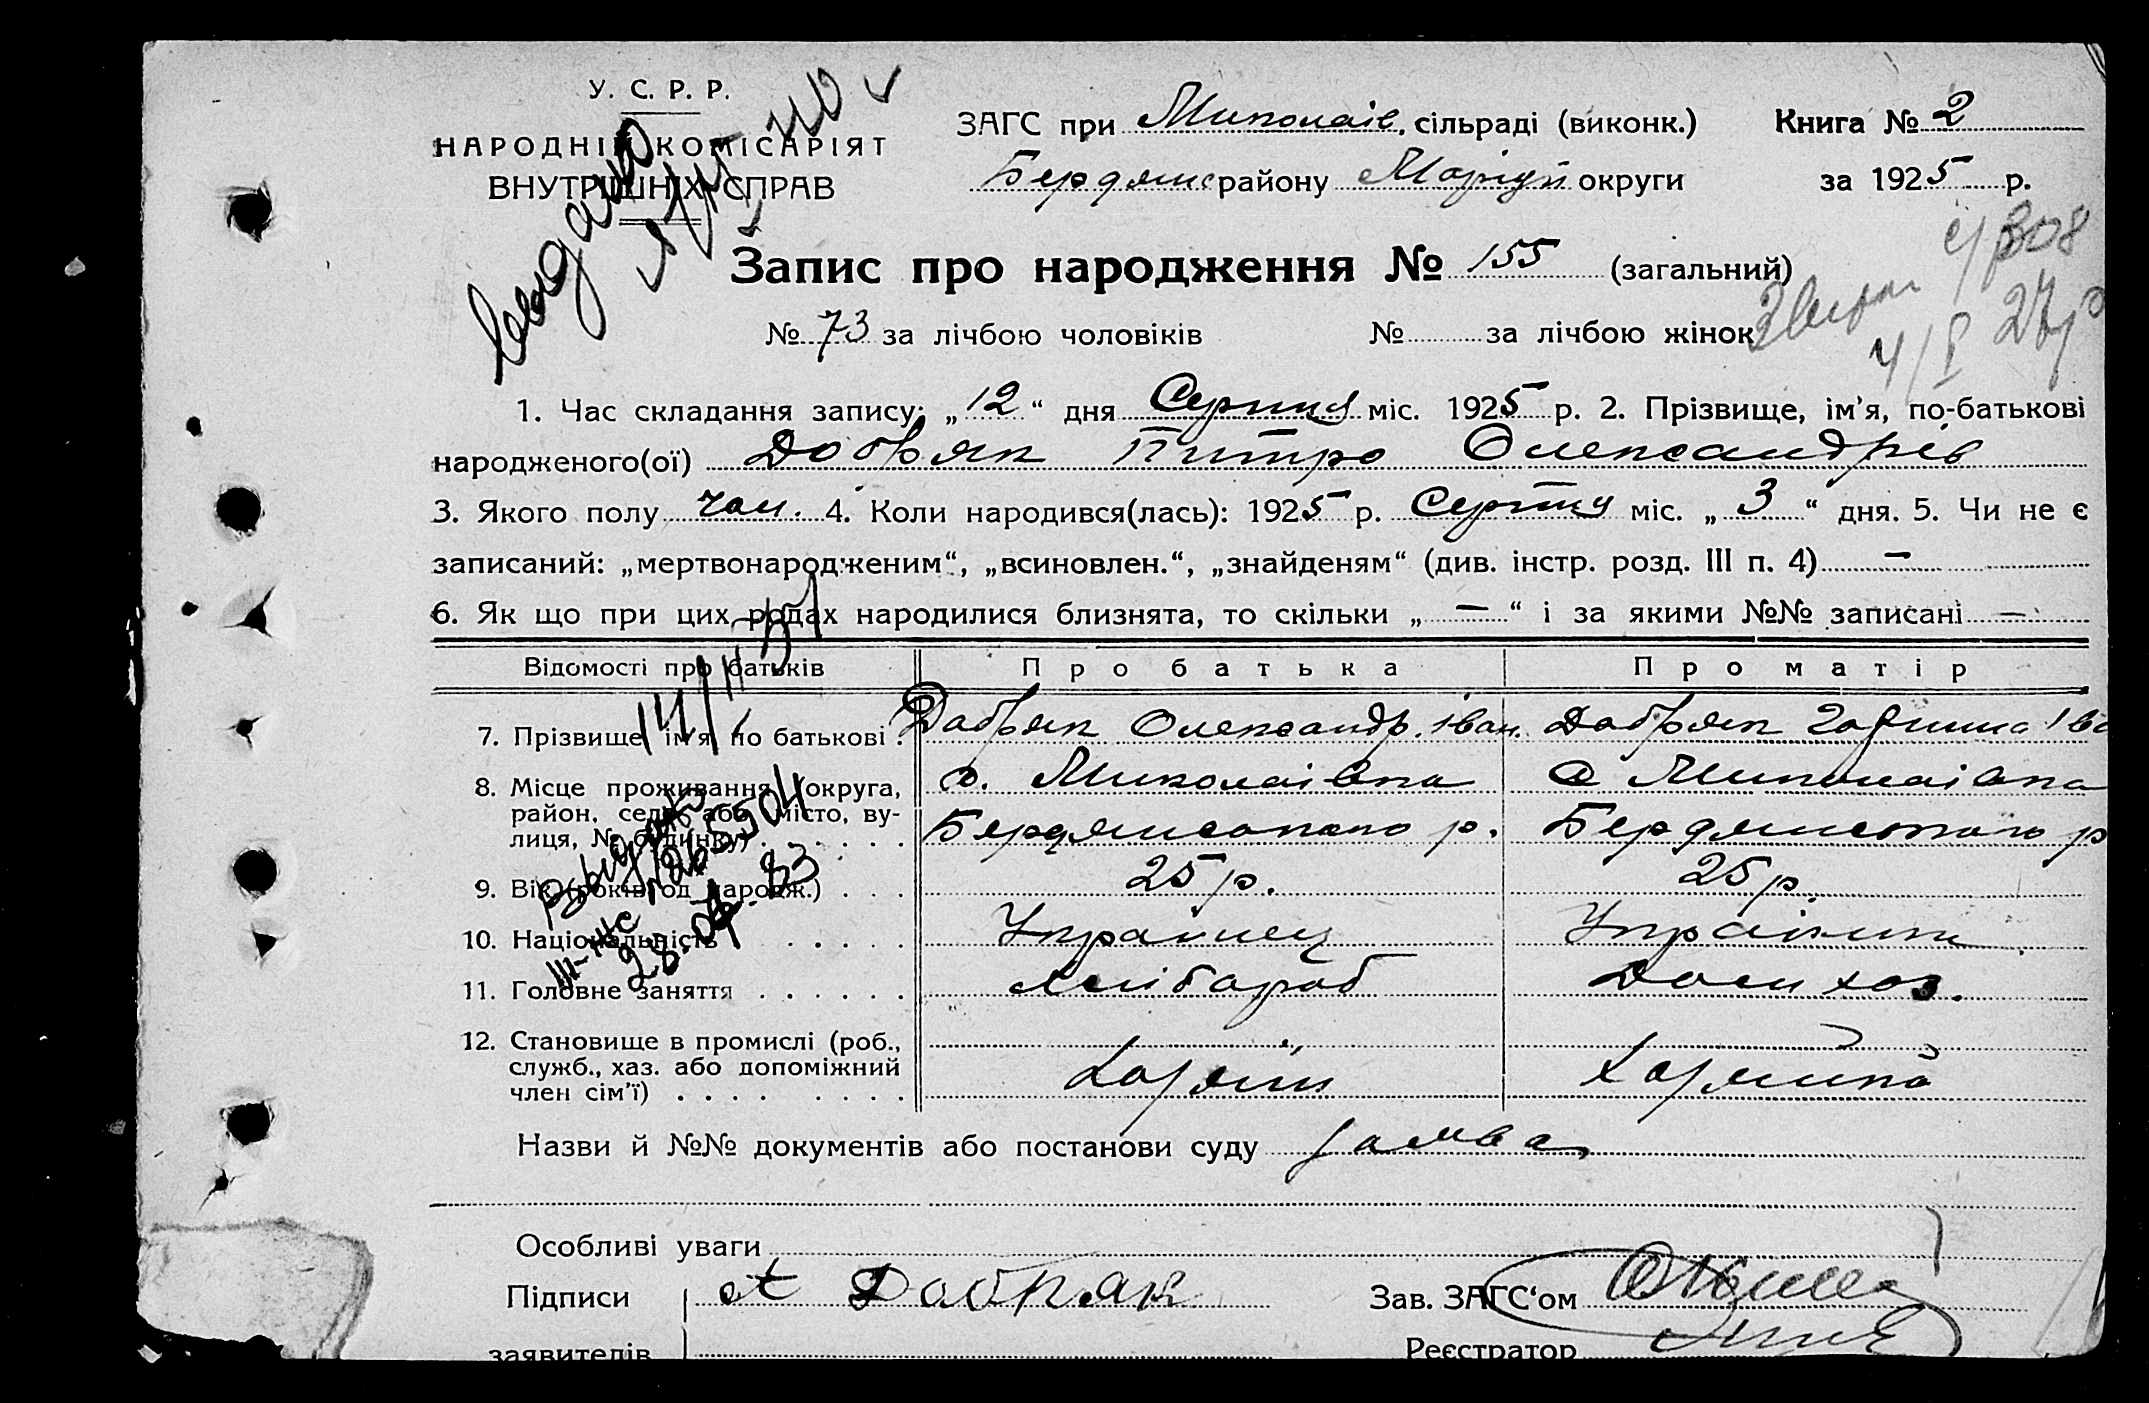 У. С. Р. Р.
НАРОДНІЙ КОМІСАРІЯТ
ВНУТРІШНІХ СПРАВ
ЗАГС при Миколаів. сільраді (виконк.) Книга № 2
Бердянс району Маріуп округи за 1925 р.
Запис про народження № 155 (загальний)
№ 73 за лічбою чоловіків № за лічбою жінок
1. Час складання запису: „12“ дня Серпня міс. 1925 р. 2. Прізвище, ім'я, по-батькові
народженого(ої) Добряк Питро Олександрів
3. Якого полу чол. 4. Коли народився(лась): 1925 р. Серпня міс. „3“ дня. 5. Чи не є
записаний: „мертвонародженим“, „всиновлен.“, „знайденям“ (див. інстр. розд. III п. 4) —
6. Як що при цих родах народилися близнята, то скільки „—“ і за якими №№ записані —
Відомості про батьків Про батька Про матір
7. Прізвище, ім'я, по батькові . Добряк Олександр. Іван. Добряк Ів
8. Місце проживання (округа, с. Миколаівка с Миколаівка
район, село, або місто, ву- Бердянського р. Бердянського р
лиця, № будинку) . . . . . .
9. Вік (років од народж.) . . . 25 р. 25 р.
10. Національність . . . . . Украинец Украінка
11. Головне заняття . . . . . . хлібороб Дом хоз.
12. Становище в промислі (роб.,
служб., хаз. або допоміжний
член сім'ї) . . . . . . . .
Назви й №№ документів або постанови суду
Особливі уваги
Підписи А Добряк Зав. ЗАГС'ом
заявителів Реєстратор
14/II 57
Выдано
III-ЖС № 265504
28.07.83